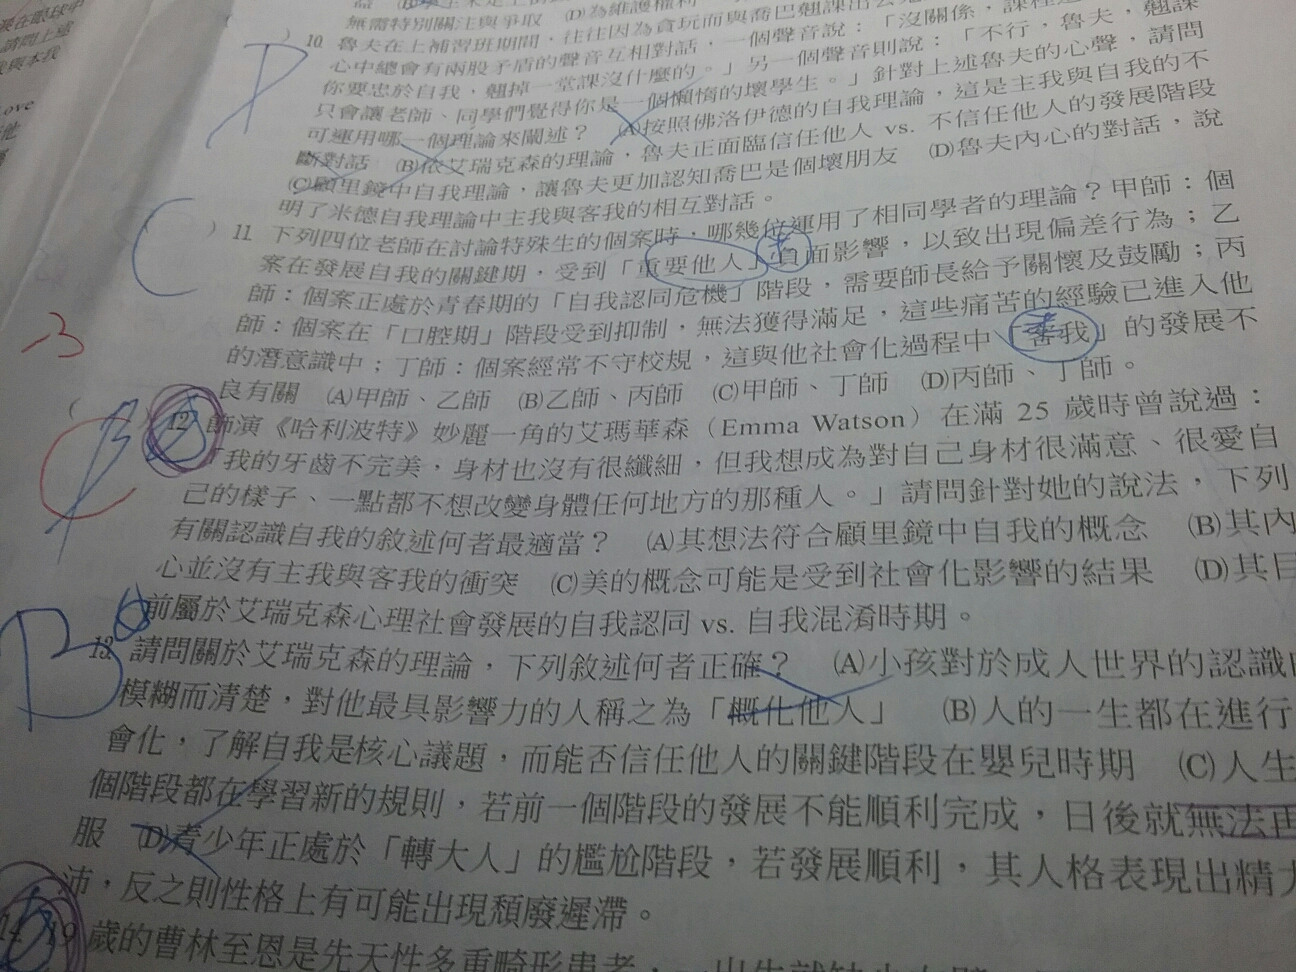 無需特別關注與爭取　(D)為維護權利
)10. 魯夫在上補習班期間，往往因為貪玩而與喬巴翹課出去
心中總會有兩股矛盾的聲音互相對話，一個聲音說：「沒關係，課程
你要忠於自我，翹掉一堂課沒什麼的。」另一個聲音則說：「不行，魯夫，翹課
只會讓老師、同學們覺得你是一個懶惰的壞學生。」針對上述魯夫的心聲，請問
可運用哪一個理論來闡述？　(A)按照佛洛伊德的自我理論，這是主我與自我的不
斷對話　(B)依艾瑞克森的理論，魯夫正面臨信任他人 vs. 不信任他人的發展階段
(C)顧里鏡中自我理論，讓魯夫更加認知喬巴是個壞朋友　(D)魯夫內心的對話，說
明了米德自我理論中主我與客我的相互對話。
)11. 下列四位老師在討論特殊生的個案時，哪幾位運用了相同學者的理論？甲師：個
案在發展自我的關鍵期，受到「重要他人」負面影響，以致出現偏差行為；乙
師：個案正處於青春期的「自我認同危機」階段，需要師長給予關懷及鼓勵；丙
師：個案在「口腔期」階段受到抑制，無法獲得滿足，這些痛苦的經驗已進入他
的潛意識中；丁師：個案經常不守校規，這與他社會化過程中「客我」的發展不
良有關　(A)甲師、乙師　(B)乙師、丙師　(C)甲師、丁師　(D)丙師、丁師。
( )12. 飾演《哈利波特》妙麗一角的艾瑪華森（Emma Watson）在滿 25 歲時曾說過：
「我的牙齒不完美，身材也沒有很纖細，但我想成為對自己身材很滿意、很愛自
己的樣子、一點都不想改變身體任何地方的那種人。」請問針對她的說法，下列
有關認識自我的敘述何者最適當？　(A)其想法符合顧里鏡中自我的概念　(B)其內
心並沒有主我與客我的衝突　(C)美的概念可能是受到社會化影響的結果　(D)其目
前屬於艾瑞克森心理社會發展的自我認同 vs. 自我混淆時期。
13. 請問關於艾瑞克森的理論，下列敘述何者正確？　(A)小孩對於成人世界的認識
模糊而清楚，對他最具影響力的人稱之為「概化他人」　(B)人的一生都在進行
會化，了解自我是核心議題，而能否信任他人的關鍵階段在嬰兒時期　(C)人生
個階段都在學習新的規則，若前一個階段的發展不能順利完成，日後就無法再
服　(D)青少年正處於「轉大人」的尷尬階段，若發展順利，其人格表現出精力
沛，反之則性格上有可能出現頹廢遲滯。
14. 19 歲的曹林至恩是先天性多重畸形患者，一出生就缺少
D
C
B